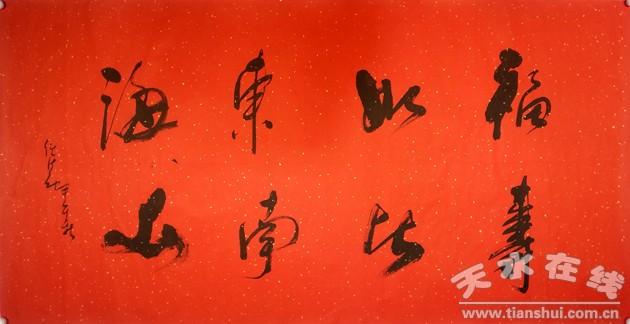 福如東海
壽比南山
天水在线
www.tianshui.com.cn